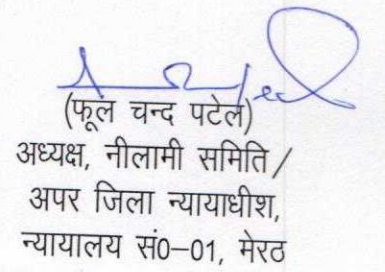 (फूल चन्द पटेल)
अध्यक्ष, नीलामी समिति /
अपर जिला न्यायाधीश,
न्यायालय सं0–01, मेरठ